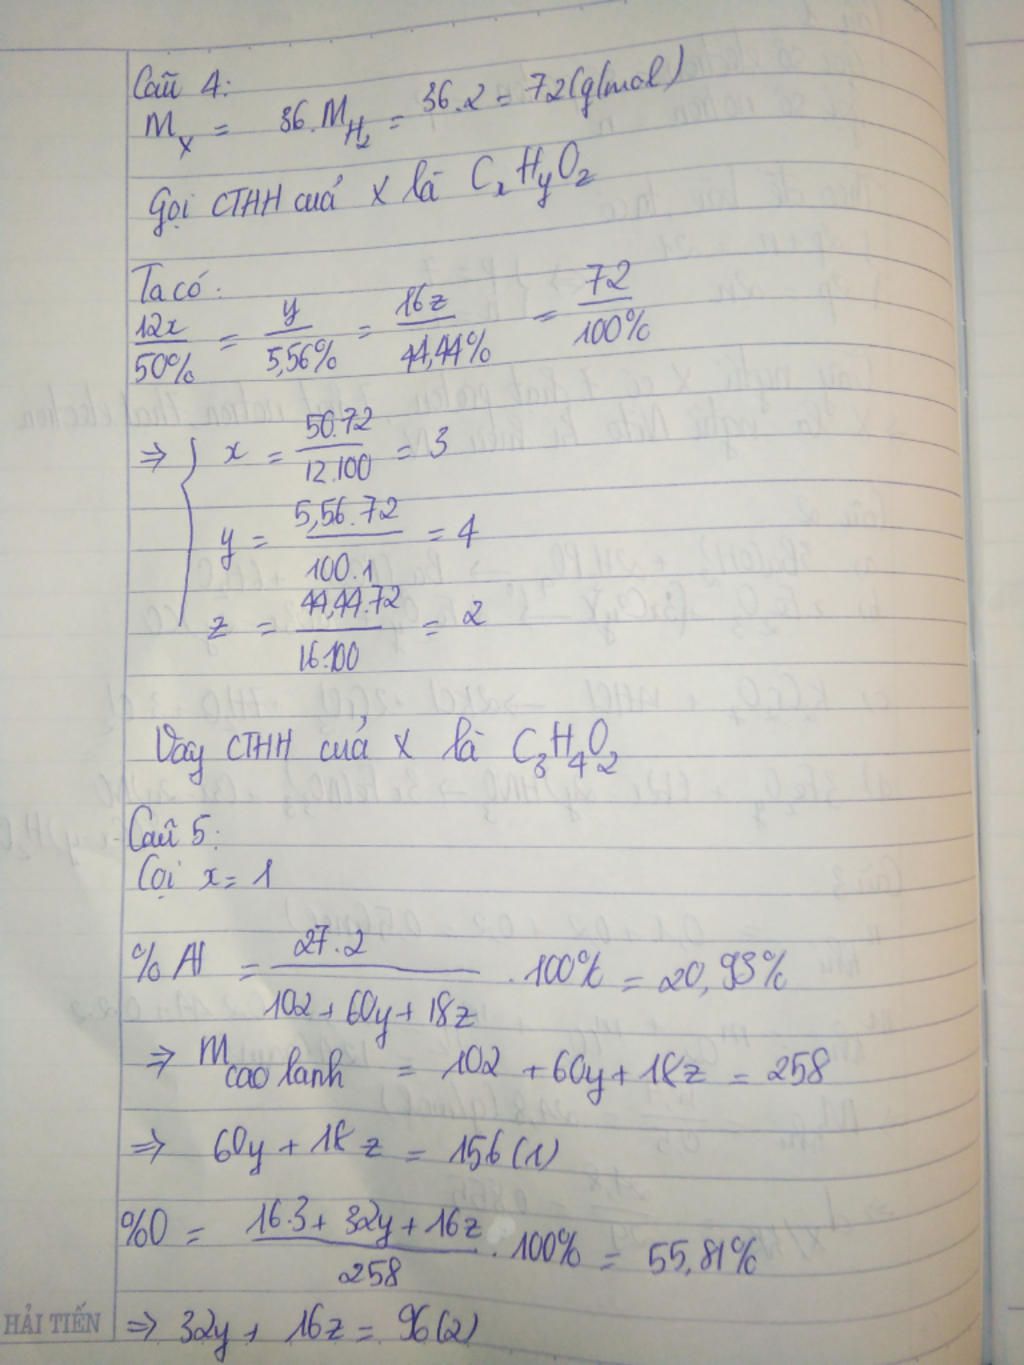 Câu 4:
M_X = 36.M_H₂ = 36.2 = 72(g/mol)
Gọi CTHH cuả X là CₓHᵧO_z
Ta có:
12x/50% = y/5,56% = 16z/44,44% = 72/100%
⇒ { x = 50.72/12.100 = 3
y = 5,56.72/100.1 = 4
z = 44,44.72/16.100 = 2
Vậy CTHH cuả X là C₃H₄O₂
Câu 5:
Gọi x = 1
%Al = 27.2/102+60y+18z . 100% = 20,93%
⇒ M cao lanh = 102 + 60y + 18z = 258
⇒ 60y + 18z = 156 (1)
%O = 16.3 + 32y + 16z/258 . 100% = 55,81%
HẢI TIẾN
⇒ 32y + 16z = 96 (2)